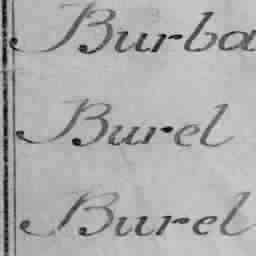 Burba
Burel
Burel